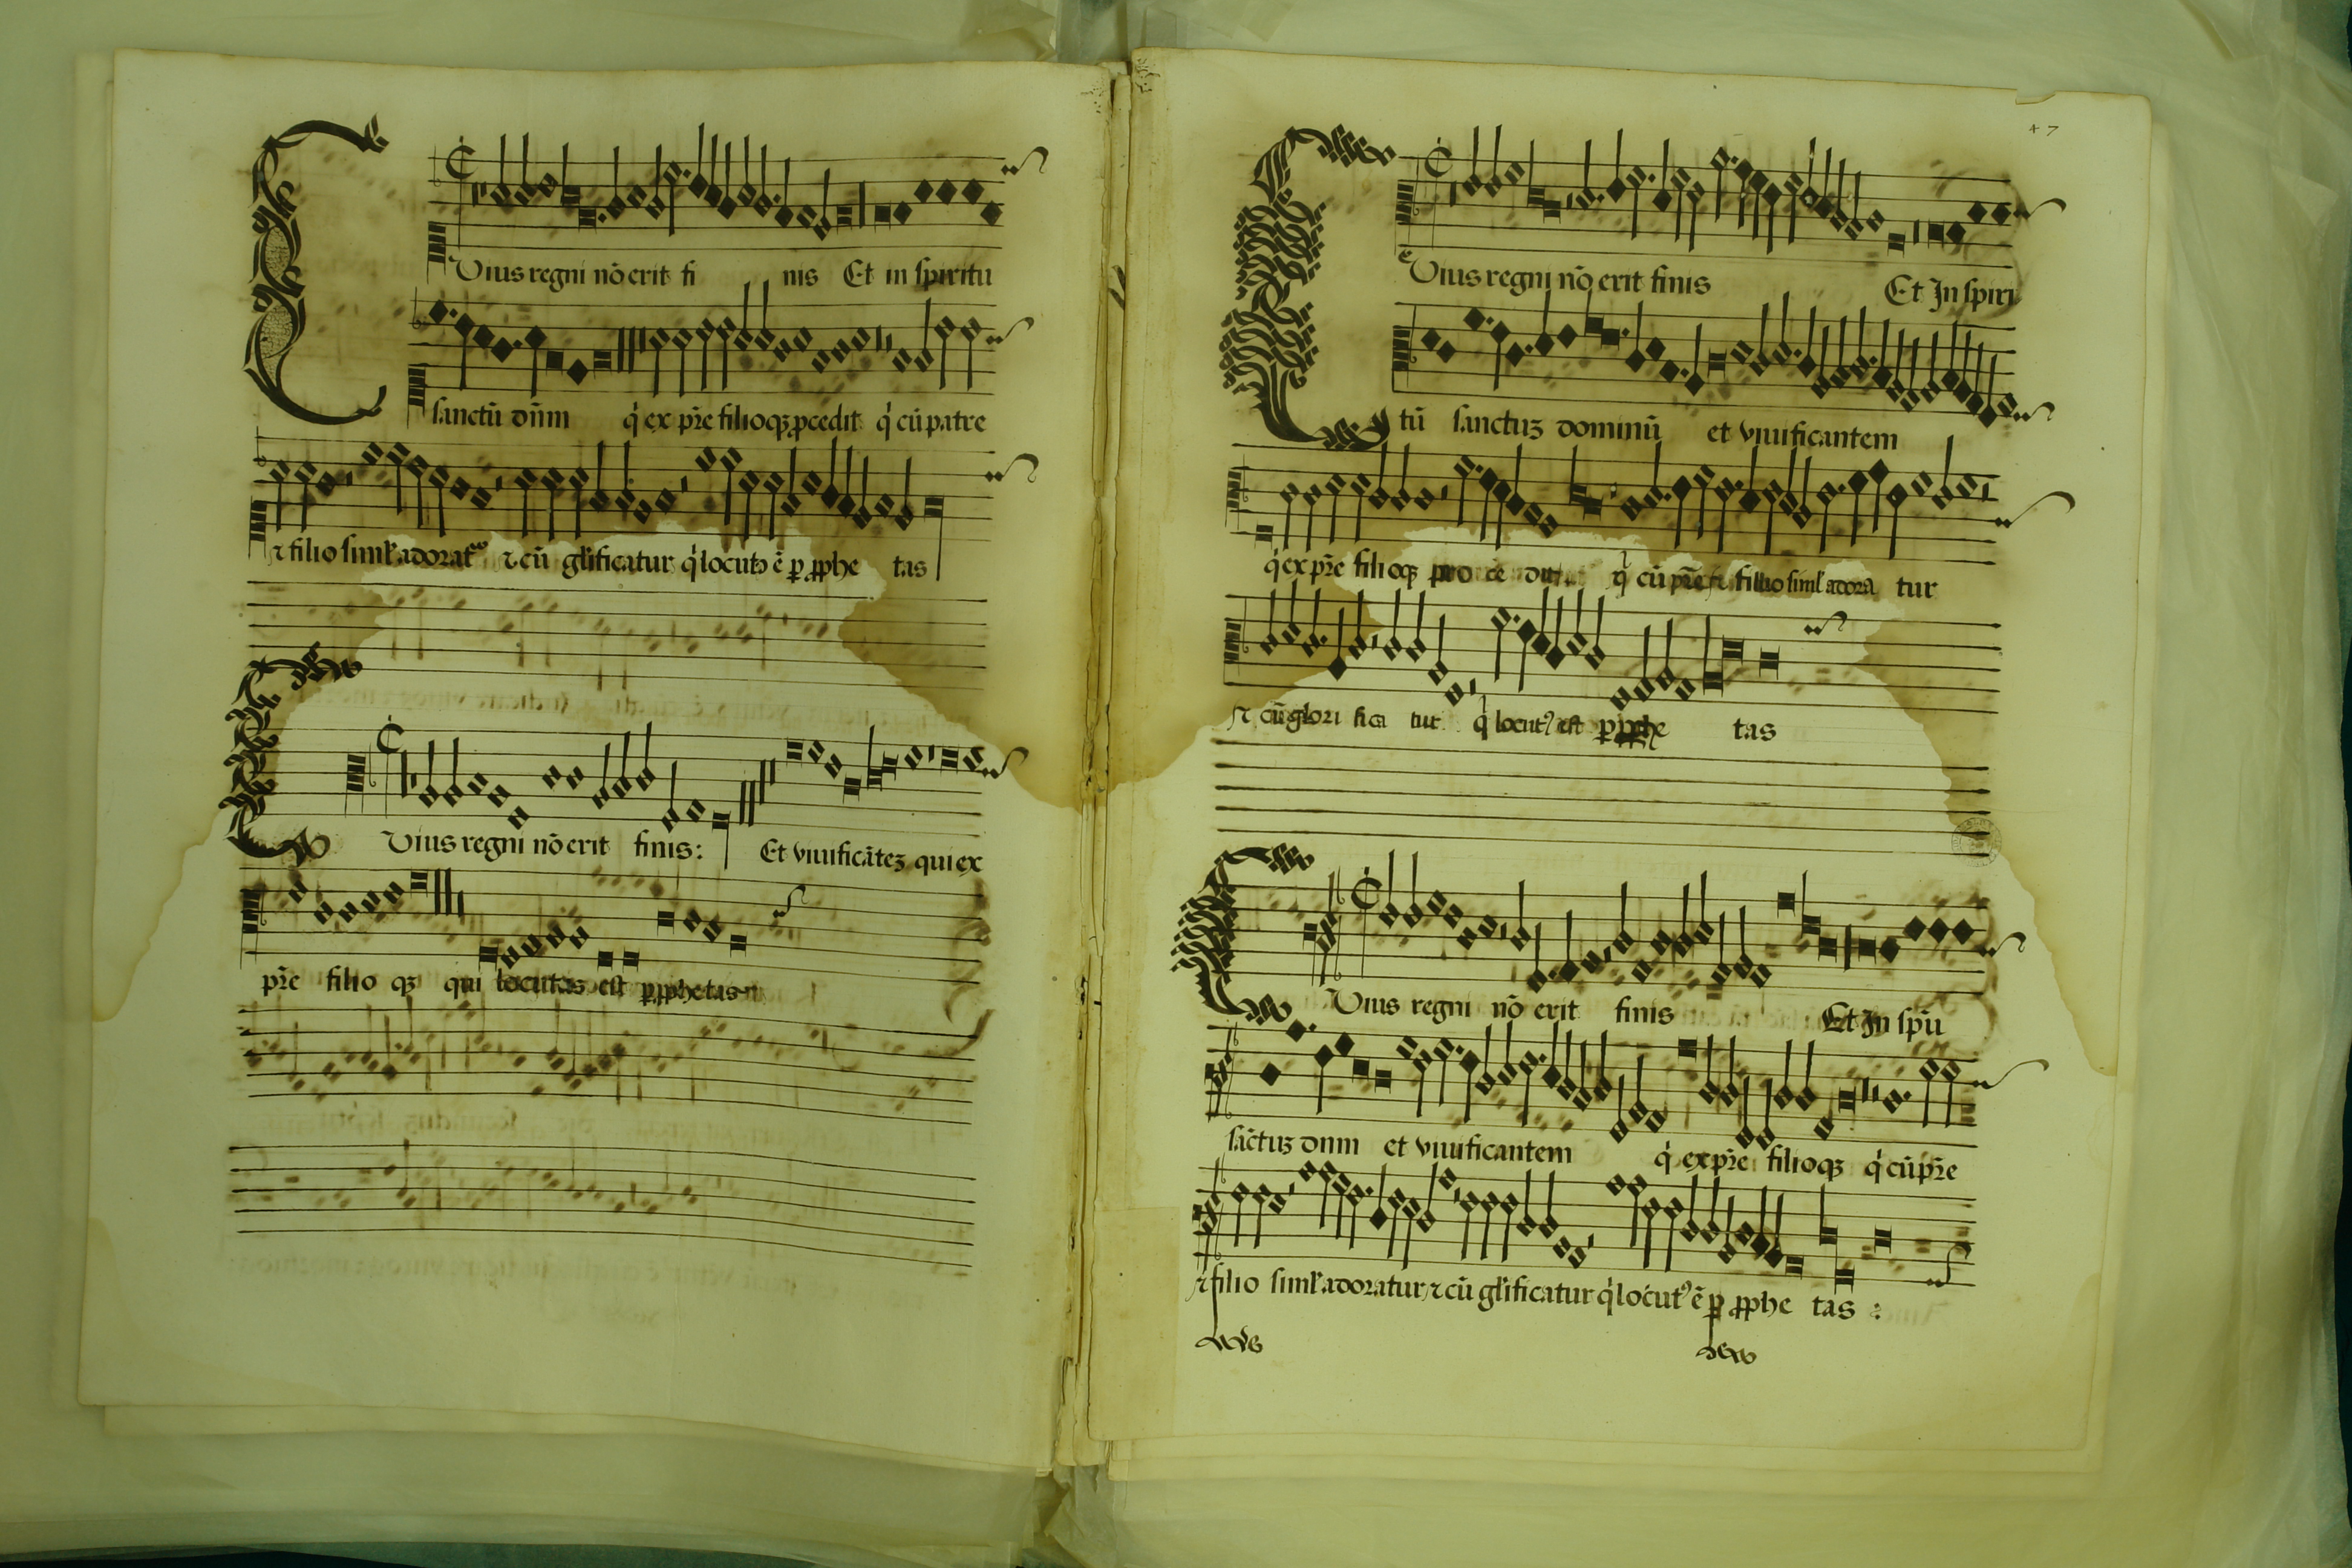 Cuius regni nō erit fi nis Et in spiritu
sanctū dn̄m q́ ex pr̄e filioqꝫ ꝓcedit q́ cū patre
⁊ filio siml̓ adorat᷑ ⁊ cū gl̓ificatur q́ locutꝰ ē ꝑ ꝓphe tas
Cuius regni nō erit finis: Et viuificāteꝫ qui ex
pr̄e filio qꝫ qui locutus est ꝑ ꝓphetas
47
Cuius regni nō erit finis Et In spiri
tū sanctuꝫ dominū et viuificantem
q́ ex pr̄e filioqꝫ pro ce dit q́ cū pr̄e ⁊ fillio siml̓ adora tur
⁊ cū glori fica tur q́ locutꝰ est ꝑ ꝓphe tas
Cuius regni nō erit finis Et In spū
sāctuꝫ dnm et viuificantem q́ ex pr̄e filioqꝫ q́ cū pr̄e
⁊ filio siml̓ adoratur ⁊ cū gl̓ificatur q́ locutꝰ ē ꝑ ꝓphe tas :